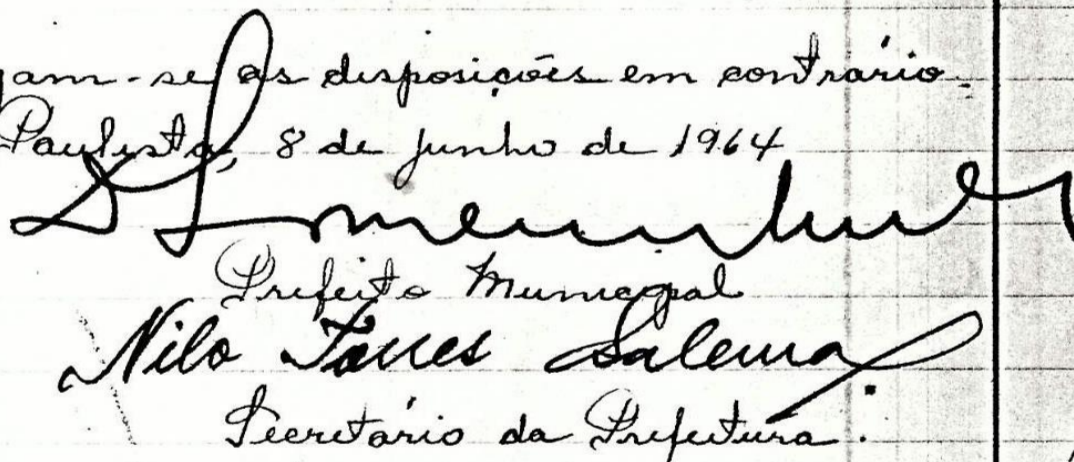 gam-se as disposições em contrário.
Paulista, 8 de junho de 1964
Prefeito Municipal
Nilo Torres Salema
Secretário da Prefeitura.